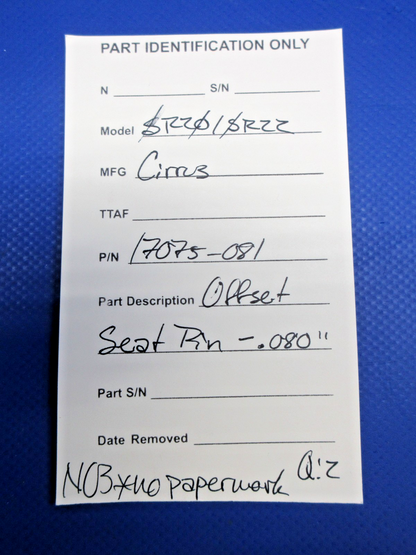 PART IDENTIFICATION ONLY
N ____________ S/N ____________
Model SR20/SR22
MFG Cirrus
TTAF ____________
P/N 17075-081
Part Description Offset
Seat Pin -.080"
Part S/N ____________
Date Removed ____________
NOB*no paperwork Q:2